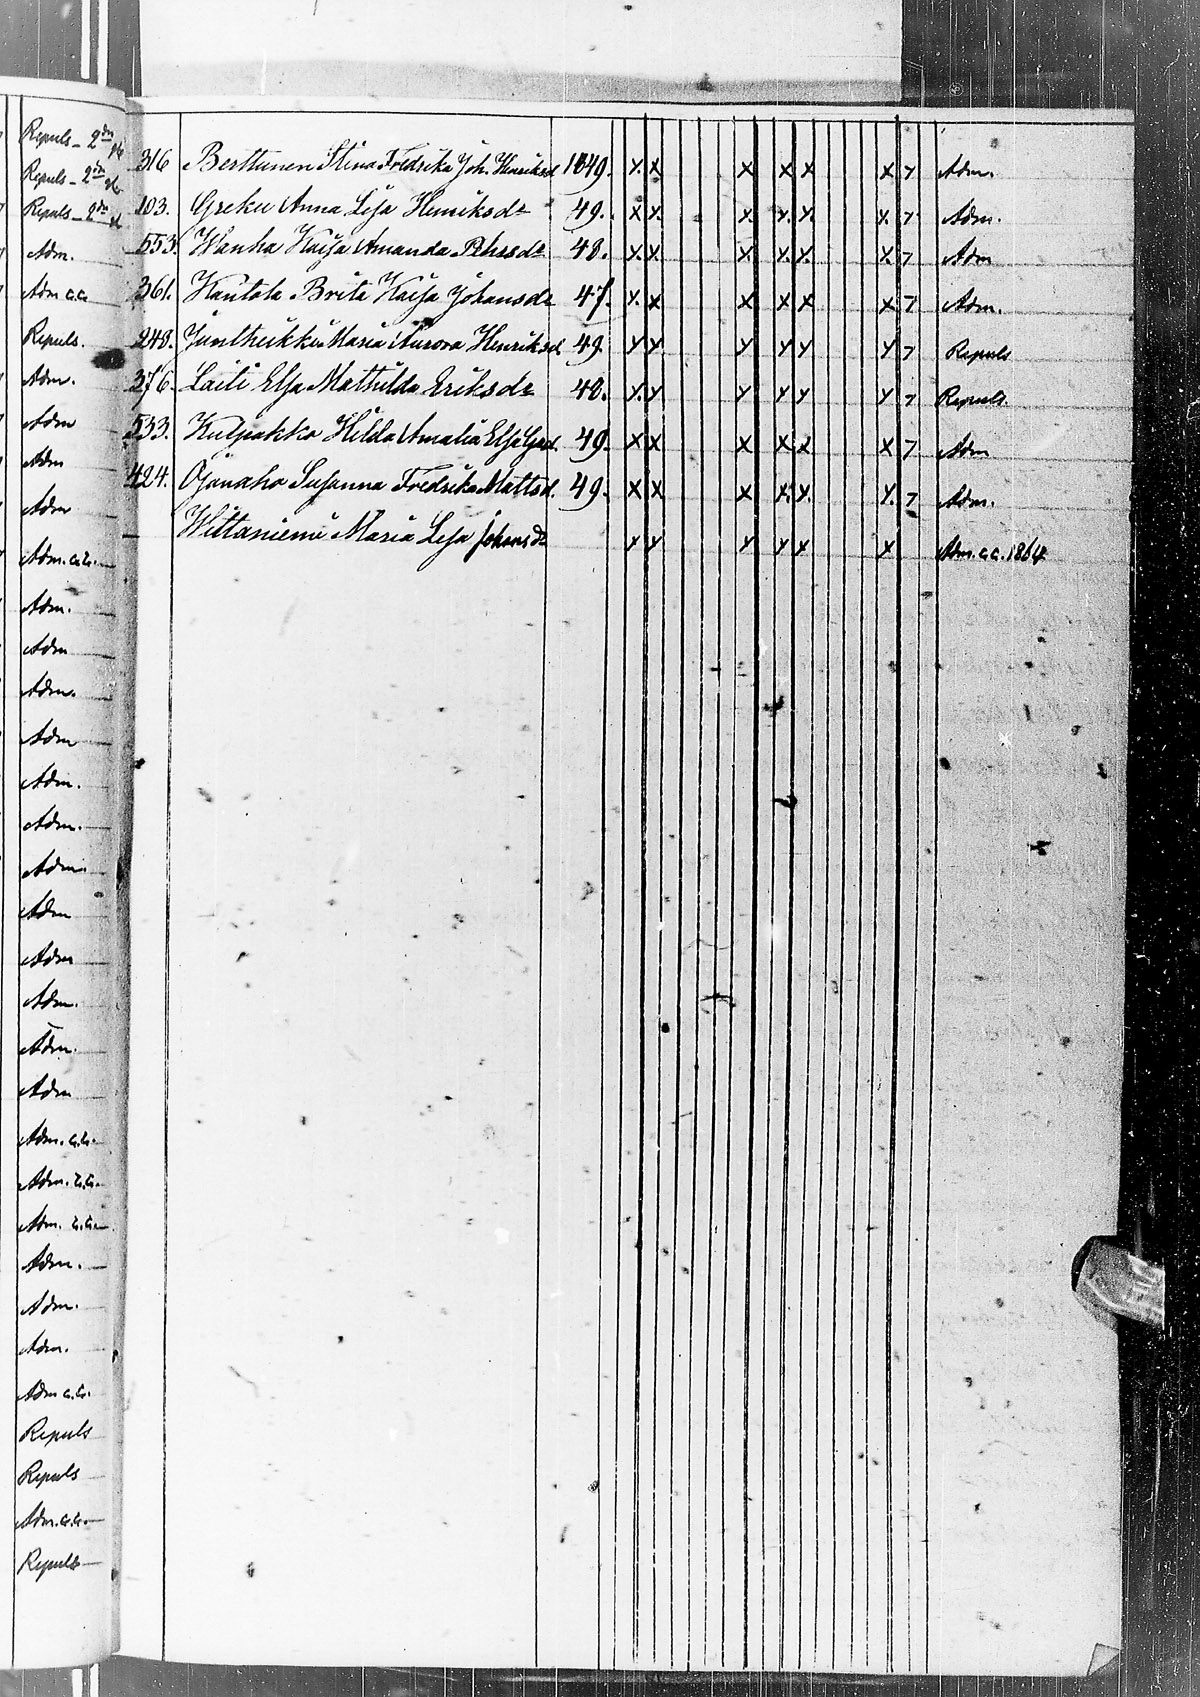 Repuls - 2dra gg
Repuls - 2dra gg
Repuls - 2dra
Adm.
Adm c.c.
Repuls.
Adm.
Adm
Adm
Adm
Adm. c.c.
Adm.
Adm
Adm.
Adm
Adm.
Adm.
Adm.
Adm
Adm
Adm.
Adm.
Adm
Adm. c.c.
Adm. c.c.
Adm. c.c.
Adm.
Adm.
Adm.
Adm c.c.
Repuls
Repuls
Adm. c.c.
Repuls
316 Berttunen Stina Fredrika Joh. Henriksd 1849. x x x x x x 7 Adm.
103. Greku Anna Lisa Henriksdr 49. x x x x x x 7 Adm.
553. Wanha Kaisa Amanda Pehrsdr 48. x x x x x x 7 Adm
361. Kantola Brita Kaisa Johansdr 47. x x x x x x 7 Adm.
248. Maria Aurora Henriksd 49. x x x x x x 7 Repuls
376. Laiti Elsa Mathilda Eriksdr 48. x x x x x x 7 Repuls.
533. Kulpakko Hilda Amalia 49. x x x x x x 7 Adm
424. Ojanaho Susanna Fredrika Mattsd. 49. x x x x x x 7 Adm.
— Wiitaniemi Maria Lisa Johansdr x x x x x x Adm. c.c. 1864